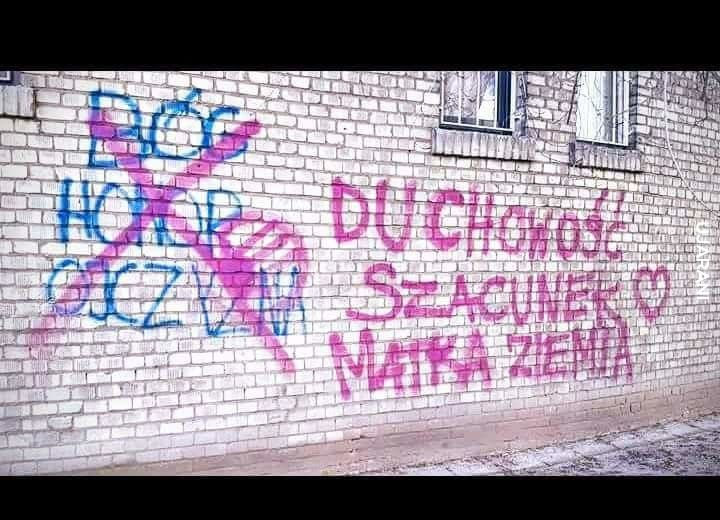 BÓG
HONOR
OJCZYZNA
DUCHOWOŚĆ
SZACUNEK
MATKA ZIEMIA
UJAPANI